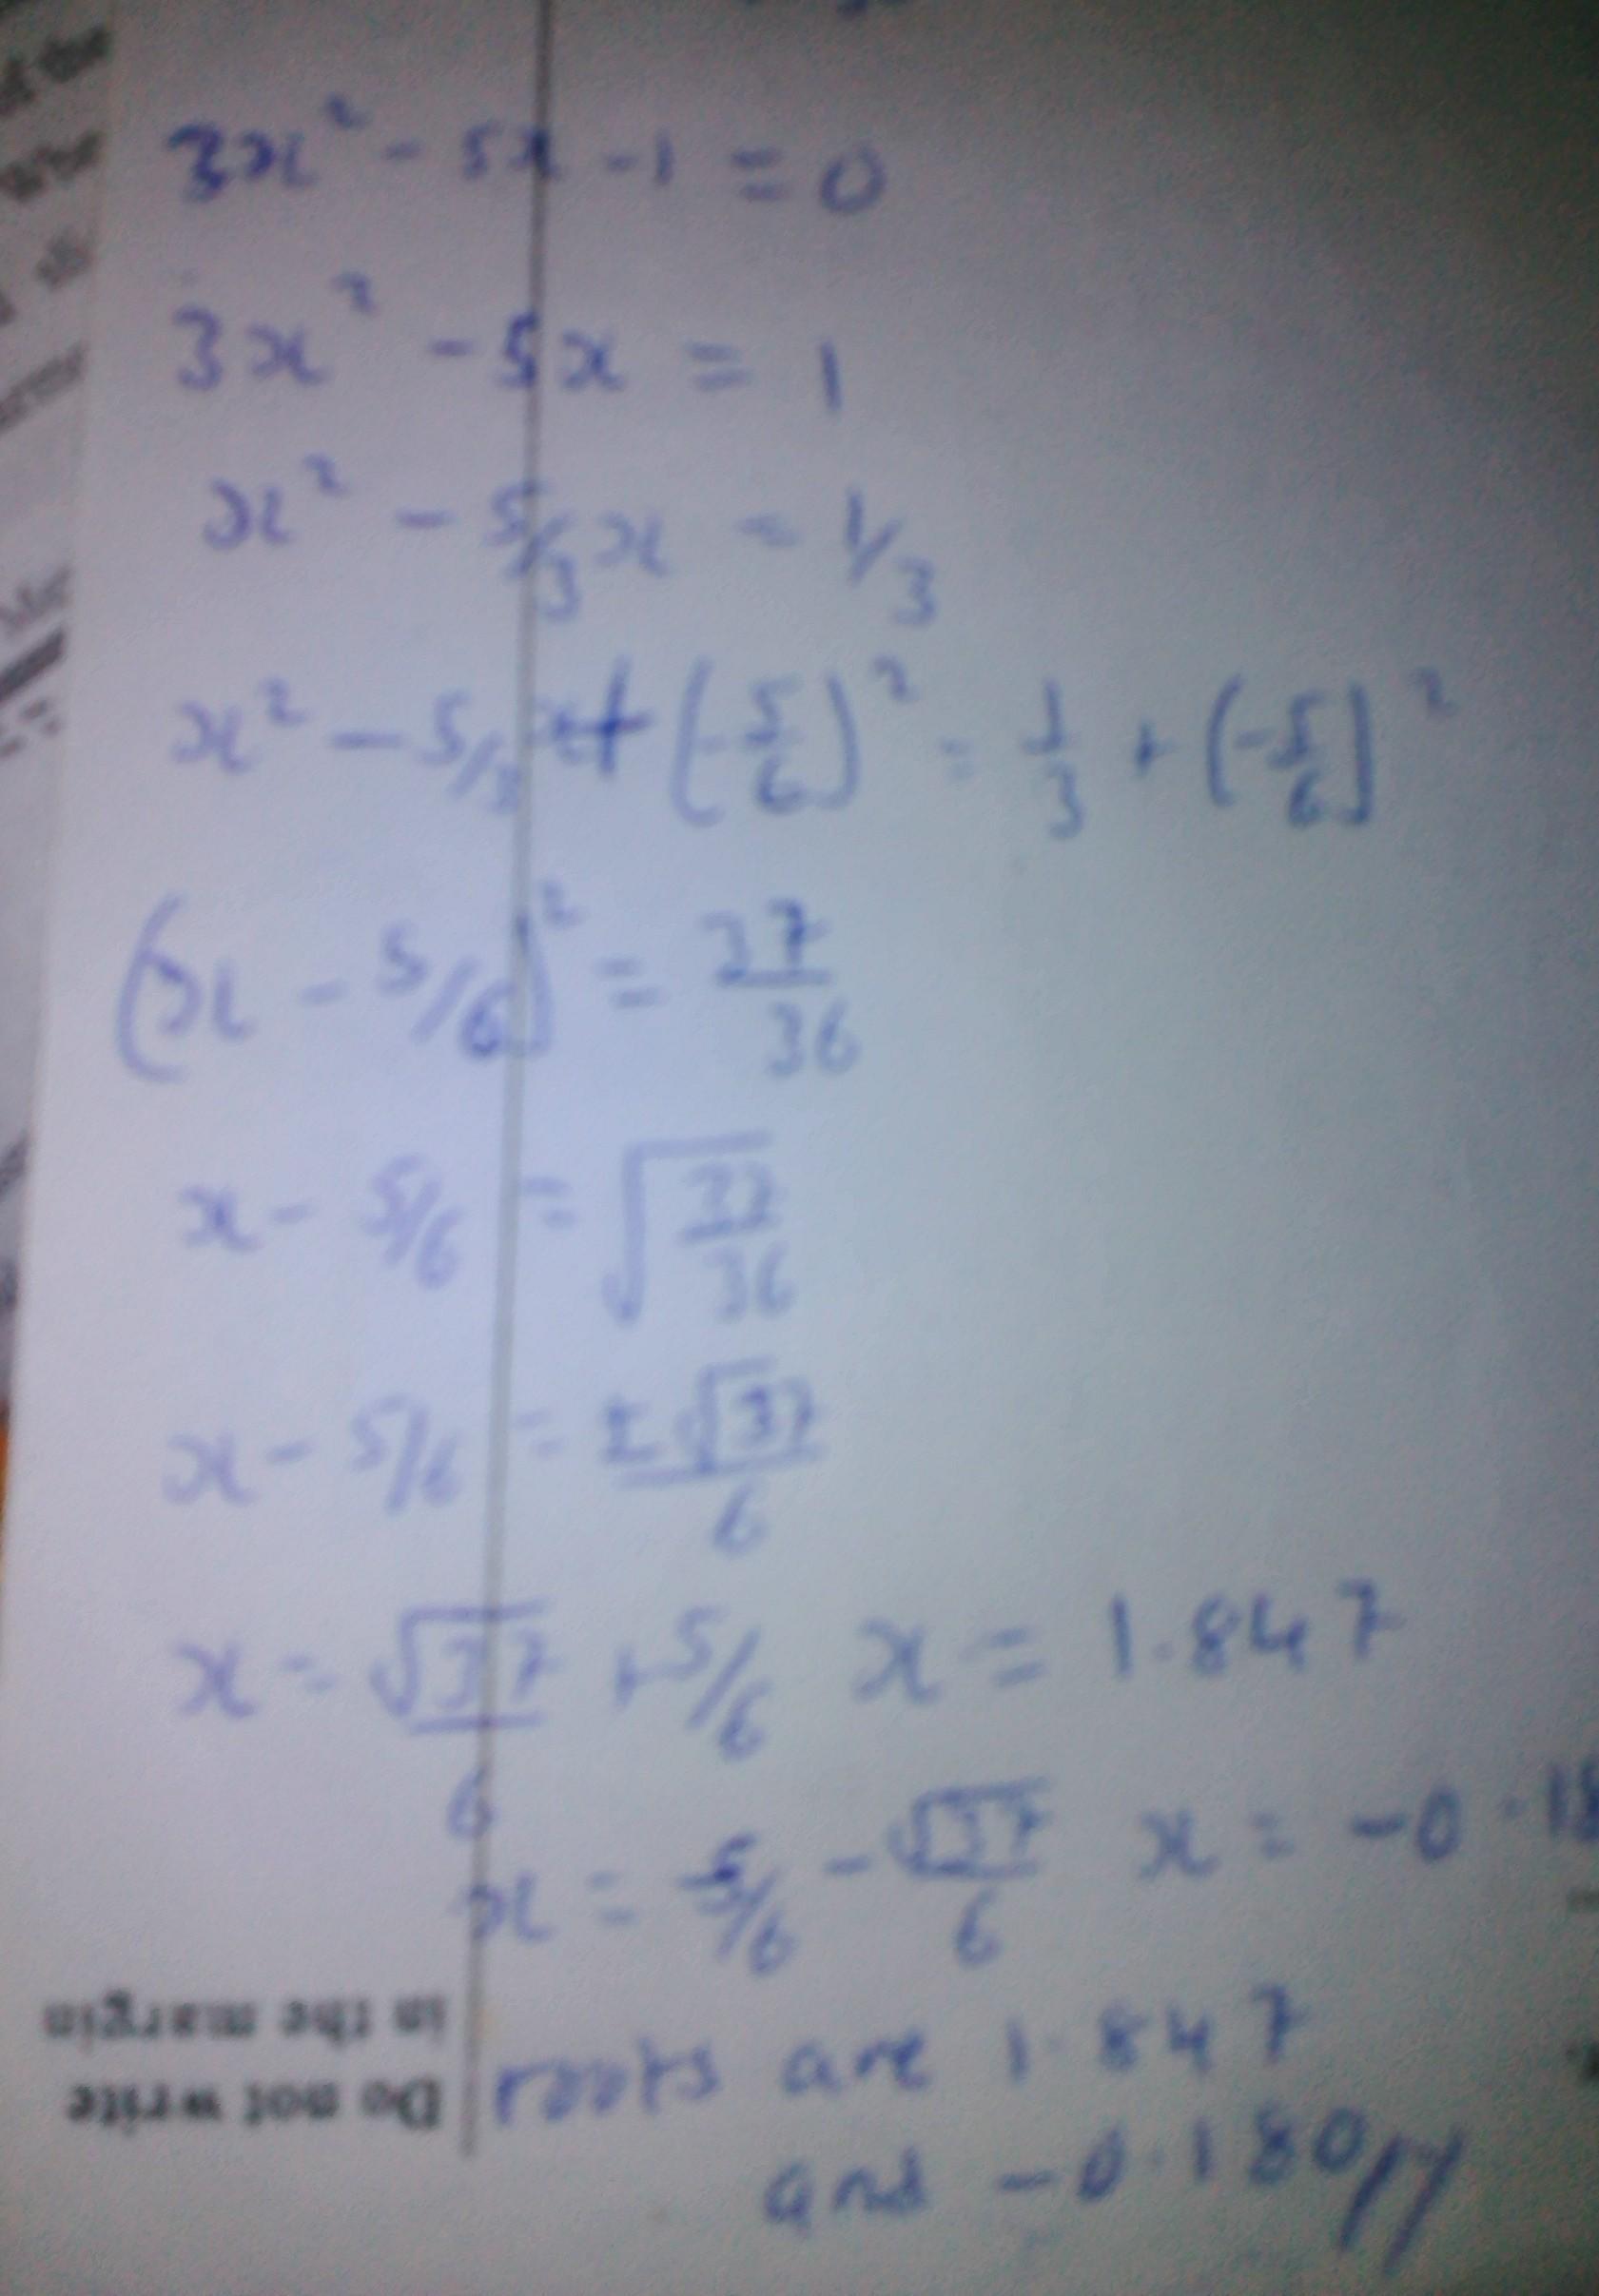 3x² - 5x - 1 = 0
3x² - 5x = 1
x² - 5/3 x = 1/3
x² - 5/3 x + (-5/6)² = 1/3 + (-5/6)²
(x - 5/6)² = 37/36
x - 5/6 = √(37/36)
x - 5/6 = ±√37/6
x = √37/6 + 5/6 x = 1.847
x = 5/6 - √37/6 x = -0.18
roots are 1.847
and -0.180//
Do not write
in the margin